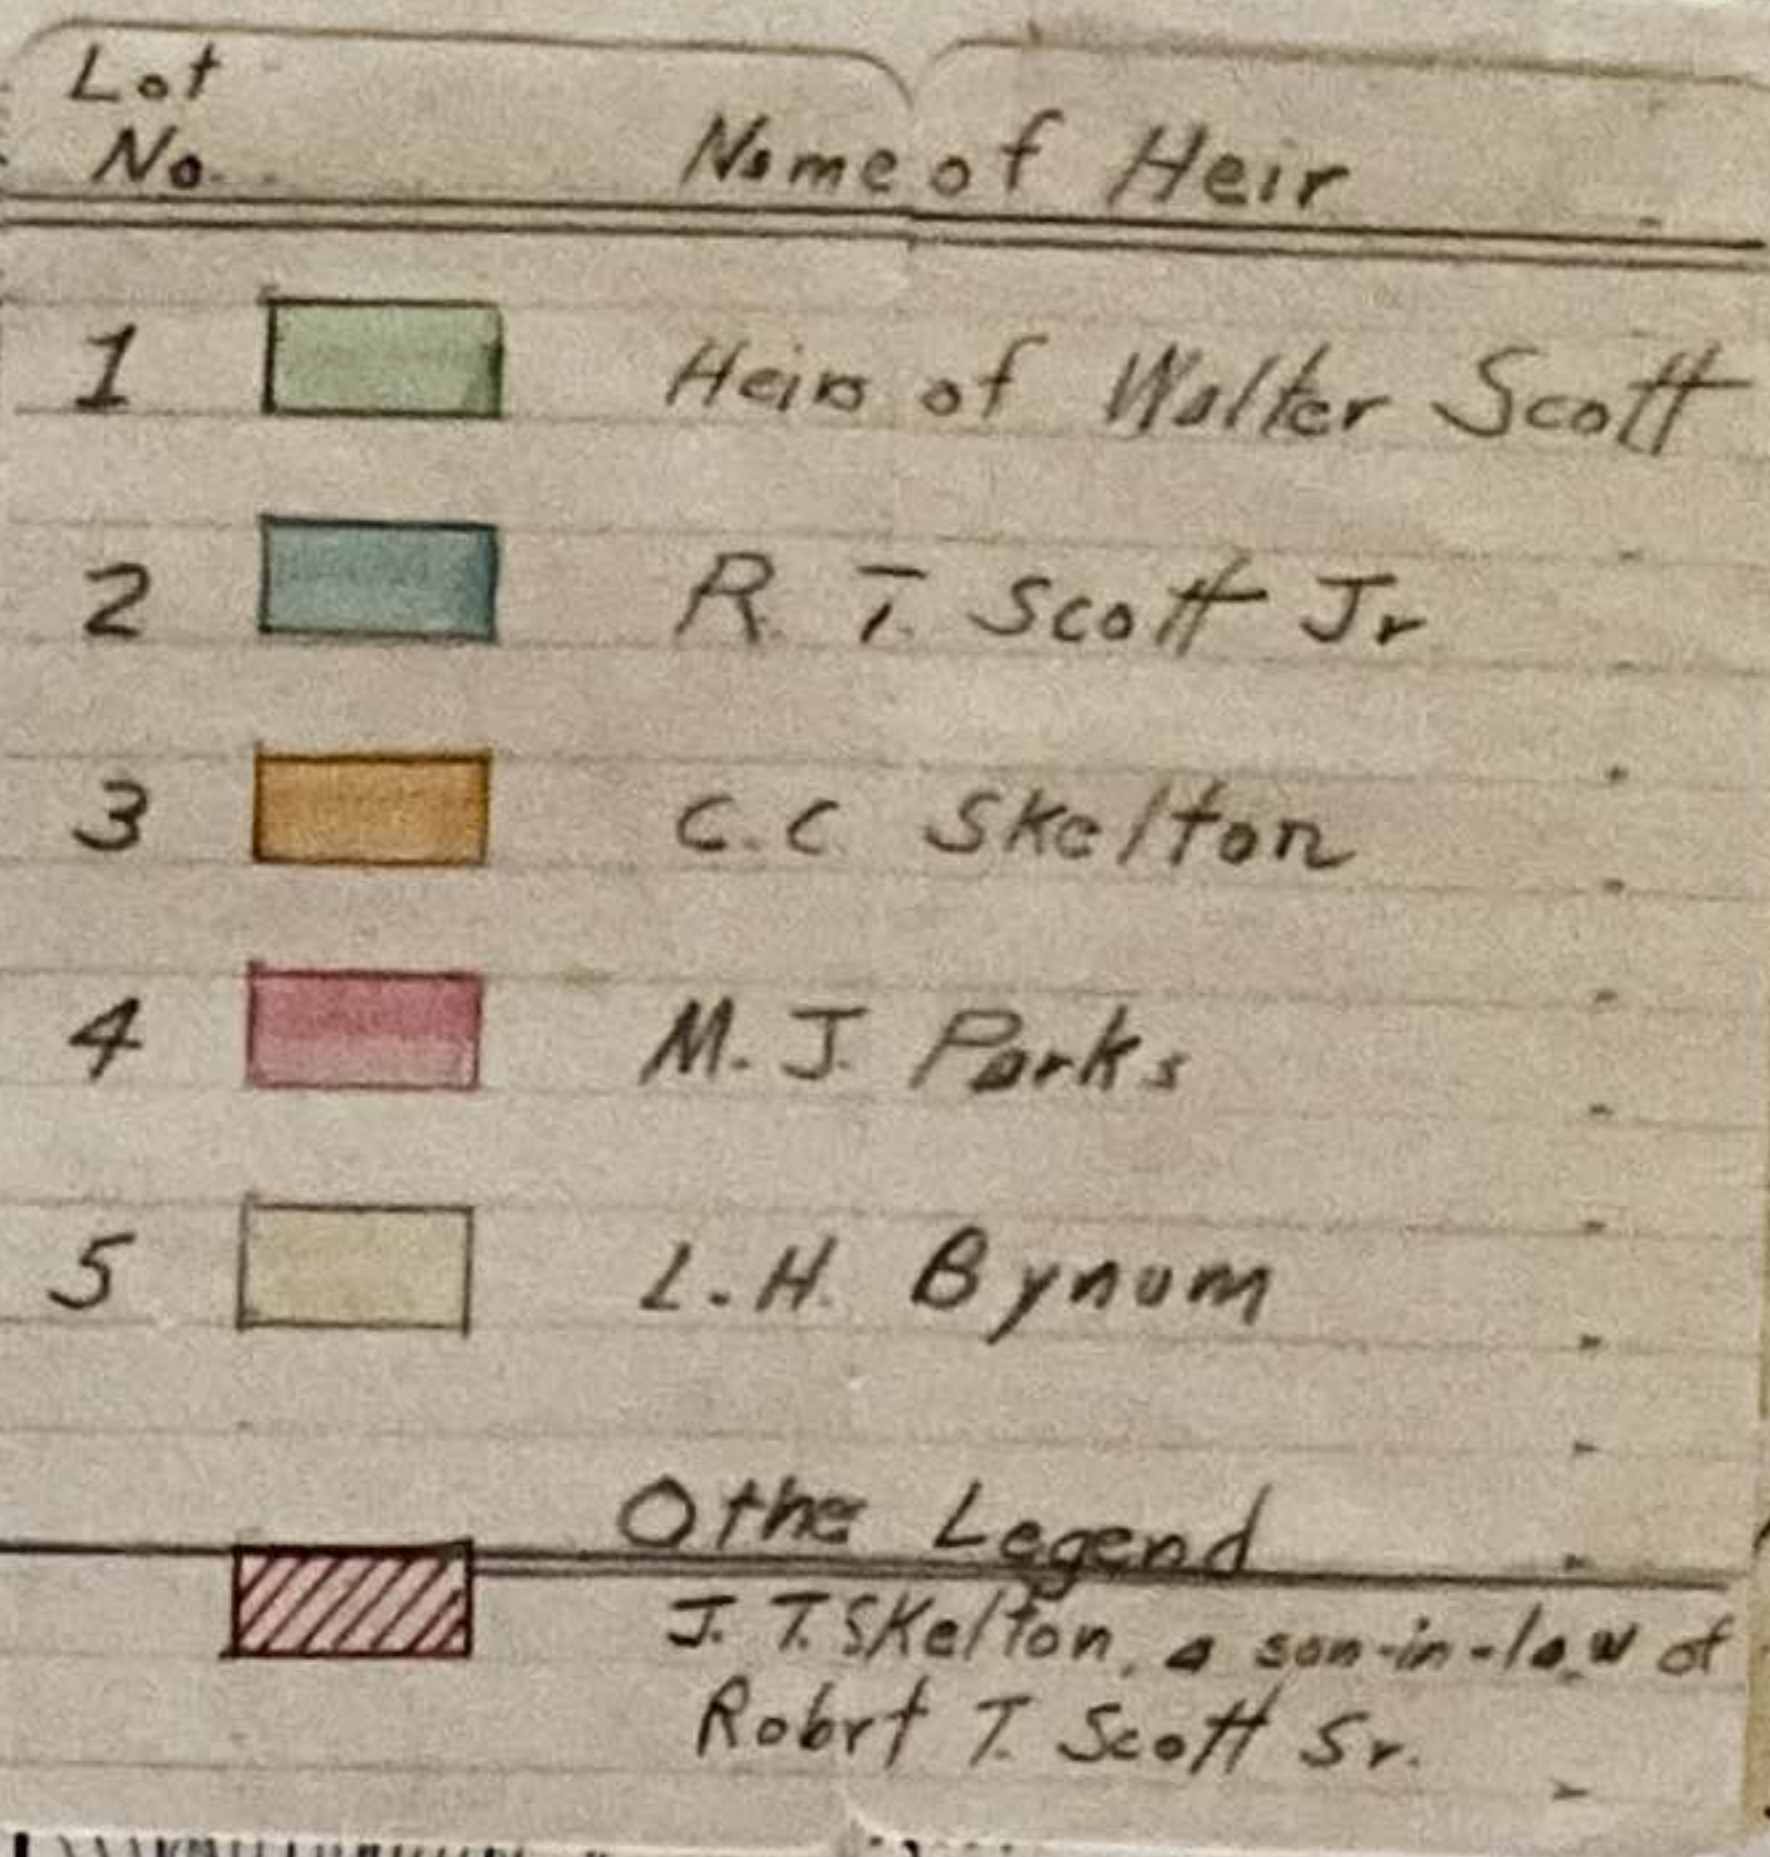 Lot
No. Name of Heir
1 Heirs of Walter Scott
2 R. T. Scott Jr
3 C.C. Skelton
4 M. J. Parks
5 L.H. Bynum
Othe Legend
J. T. Skelton, a son-in-law of
Robrt T. Scott Sr.